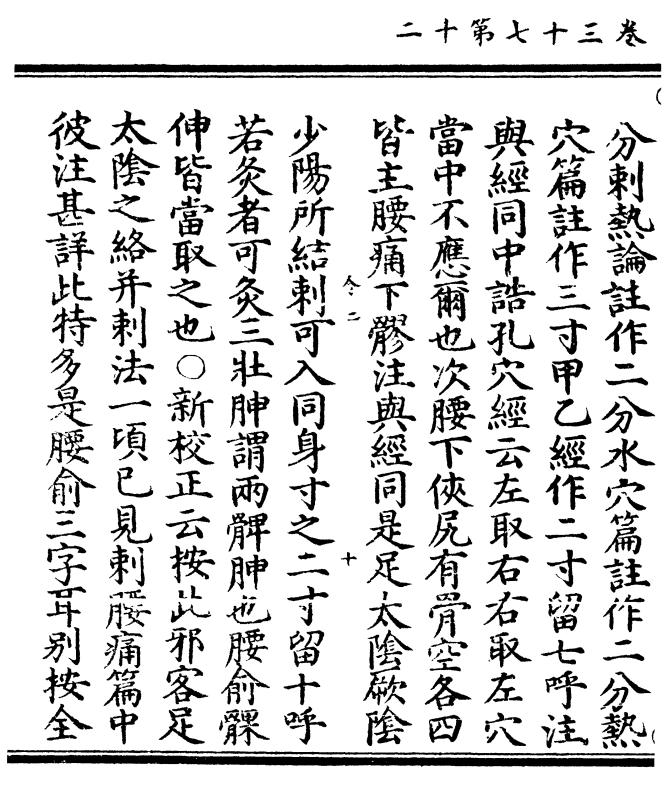 卷三十七第十二
分刺熱論註作二分水穴篇註作二分熱
穴篇註作三寸甲乙經作二寸留七呼注
與經同中誥孔穴經云左取右右取左穴
當中不應爾也次腰下俠尻有骨空各四
皆主腰痛下髎注與經同是足太陰厥陰
令二
十
少陽所結刺可入同身寸之二寸留十呼
若灸者可灸三壯胂謂兩髀胂也腰俞髁
伸皆當取之也○新校正云按此邪客足
太陰之絡并刺法一項已見刺腰痛篇中
彼注甚詳此特多是腰俞三字耳別按全